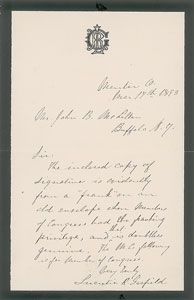 Mentor O.
Mr. John B.
Buffalo N.Y.
Sir
The inclosed copy of
signature is evidently
from a "frank" on an
old envelope when Members
of Congress had the franking
privilege, and is doubtless
genuine. The M.C. following
is for Member of Congress.
Very truly
Lucretia R. Garfield